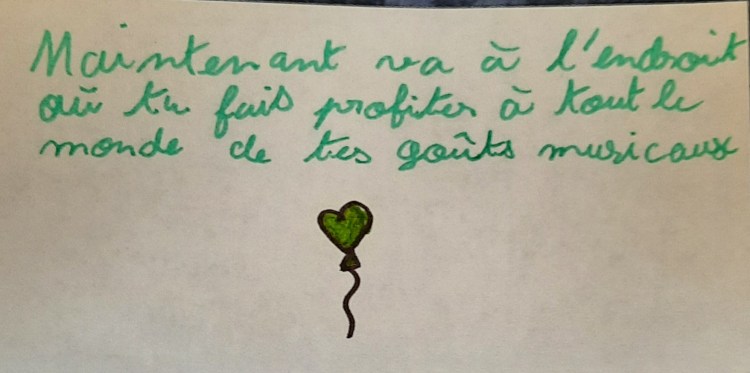 Maintenant va à l'endroit
où tu fais profiter à tout le
monde de tes goûts musicaux